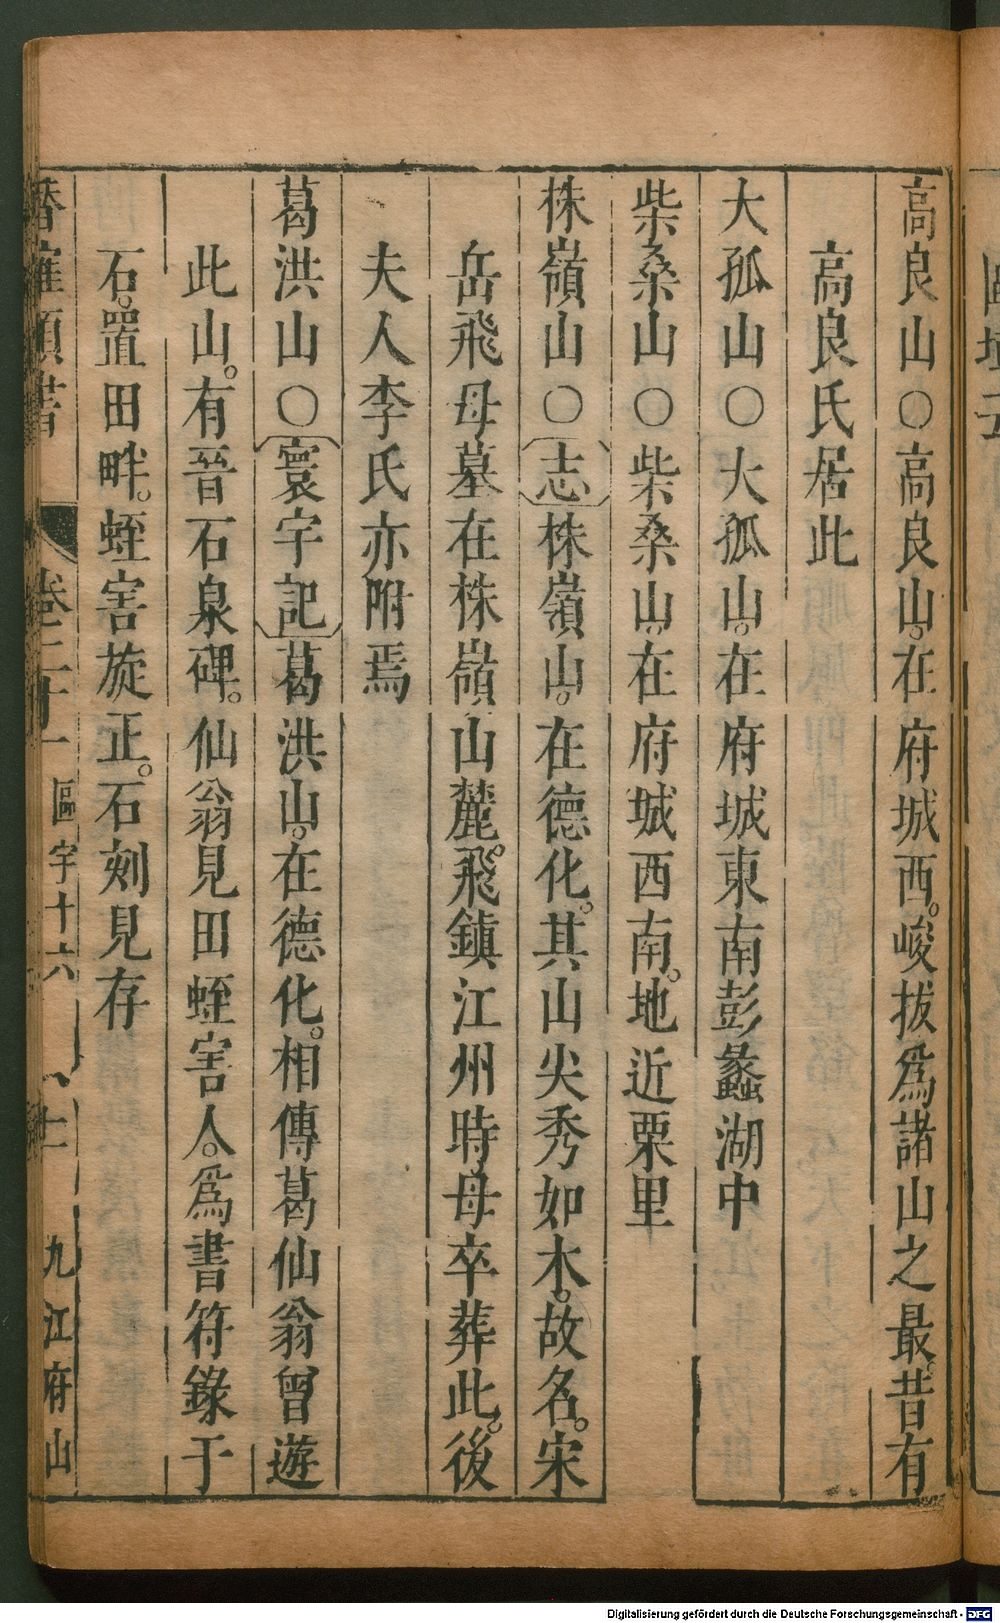 高良山○高良山。在府城西。峻拔爲諸山之最。昔有
高良氏居此
大孤山○大孤山。在府城東南彭蠡湖中
柴桑山○柴桑山。在府城西南。地近栗里
株嶺山○〔志〕株嶺山。在德化。其山尖秀如木。故名。宋
岳飛母墓在株嶺山麓。飛鎮江州時母卒葬此。後
夫人李氏亦附焉
葛洪山○〔寰宇記〕葛洪山。在德化。相傳葛仙翁曾遊
此山。有晉石泉碑。仙翁見田蛭害人。爲書符錄于
石。置田畔。蛭害旋止。石刻見存
卷二十一 區宇十六 九江府山
Digitalisierung gefördert durch die Deutsche Forschungsgemeinschaft - DFG